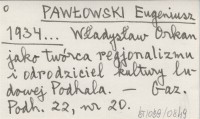 PAWŁOWSKI Eugeniusz
1934... Władysław Orkan
jako twórca regjonalizmu
i odrodziciel kultury lu-
dowej Podhala. — Gaz.
Podh. 22, nr 20.